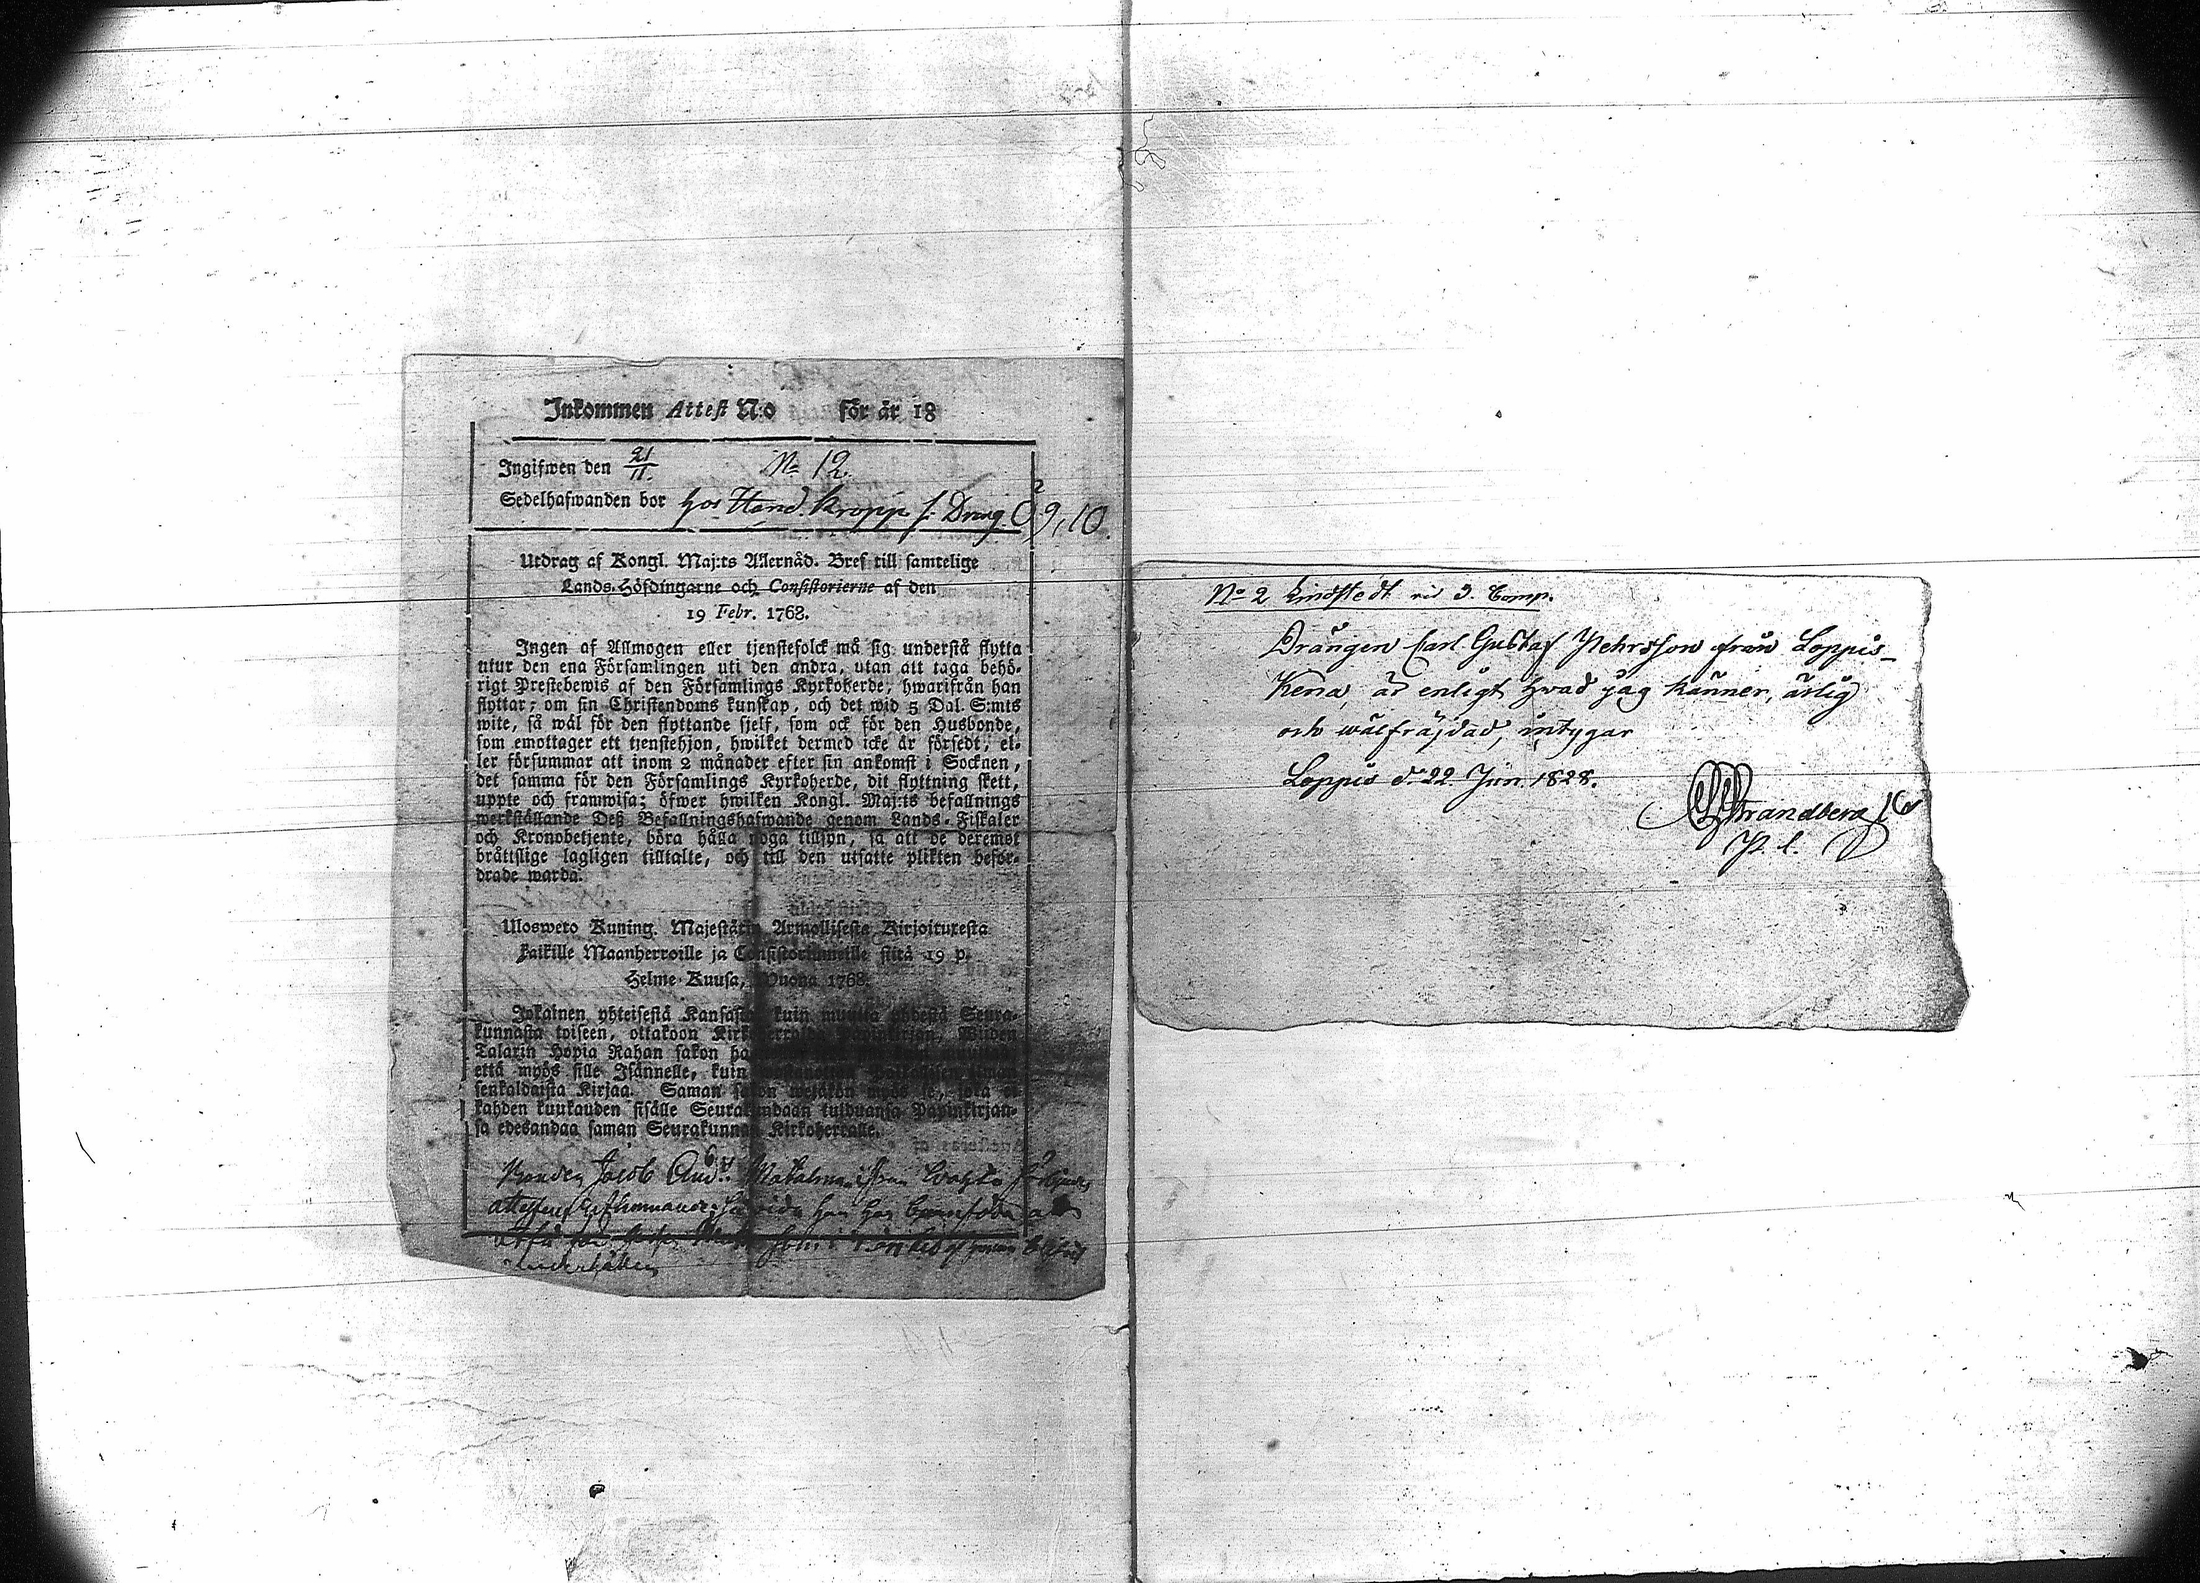 Inkommen Attest N:o för år 18
Ingifwen den 21/11. No 12.
Sedelhafwanden bor hos Hand. Kropp f. Dräng. C 9, 10.
Utdrag af Kongl. Maj:ts Allernåd. Bref till samtelige
Lands-Höfdingarne och Consistorierne af den
19 Febr. 1768.
Ingen af Allmogen eller tjenstefolck må sig understå flytta
utur den ena Församlingen uti den andra, utan att taga behö-
rigt Prestebewis af den Församlings Kyrkoherde, hwarifrån han
flyttar; om sin Christendoms kunskap, och det wid 5 Dal. S:mts
wite, så wäl för den flyttande sjelf, som ock för den Husbonde,
som emottager ett tjenstehjon, hwilket dermed icke är försedt; el-
ler försummar att inom 2 månader efter sin ankomst i Socknen,
det samma för den Församlings Kyrkoherde, dit flyttning skett,
uppte och framwisa; öfwer hwilken Kongl. Maj:ts befallnings
werkställande Deß Befallningshafwande genom Lands-Fiskaler
och Kronobetjente, böra hålla noga tillsyn, så att de deremot
bråttslige lagligen tilltalte, och till den utsatte plikten beför-
drade warda.
Uloswero Kuning. Majestätin Armollisesta Kirjoituxesta
kaikille Maanherroille ja Consistoriumeille siitä 19 p.
Helme-Kuusa, Wuona 1768.
Jokainen yhteisestä Kansasta kuin muutta yhdestä Seura-
kunnasta toiseen, ottakoon Kirkkoherralta Papinkirjan, wiiden
Talarin Hopia Rahan sakon
että myös sille Isännelle, kuin
senkaldaista Kirjaa. Saman sakon wetäkön myös se, joka ei
kahden kuukauden sisälle Seurakundaan tulduansa Papinkirjan-
sa edesandaa saman Seurakunnan Kirkoherralle.
Jacob And.
No 2 Lindstedt vid 3. Comp.
Drängen Carl Gustaf Pehrsson från Loppis-
Kena, är enligt hwad jag känner, ärlig
och wälfräjdad, intygar
Loppis d. 22 Jun. 1828.
Strandberg
P. l.